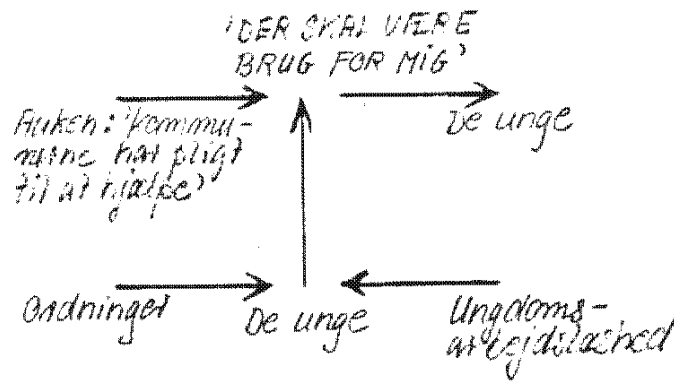 'DER SKAL VÆRE
BRUG FOR MIG'
De unge
Auken: 'kommu-
nerne har pligt
til at hjælpe'
Ordninger
De unge
Ungdoms-
arbejdsløshed